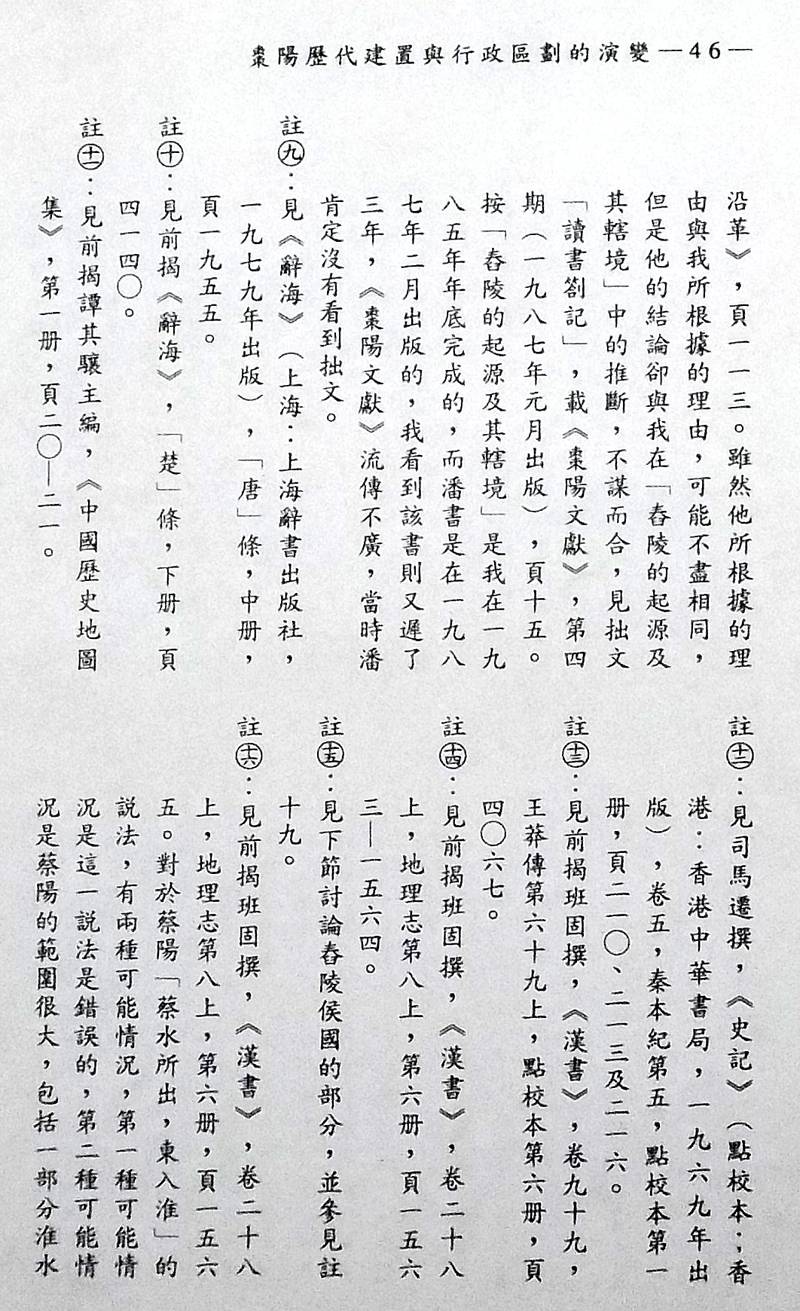 棗陽歷代建置與行政區劃的演變—46—
沿革》，頁一一三。雖然他所根據的理
由與我所根據的理由，可能不盡相同，
但是他的結論卻與我在「舂陵的起源及
其轄境」中的推斷，不謀而合，見拙文
「讀書劄記」，載《棗陽文獻》，第四
期（一九八七年元月出版），頁十五。
按「舂陵的起源及其轄境」是我在一九
八五年年底完成的，而潘書是在一九八
七年二月出版的，我看到該書則又遲了
三年，《棗陽文獻》流傳不廣，當時潘
肯定沒有看到拙文。
註㊈：見《辭海》（上海：上海辭書出版社，
一九七九年出版），「唐」條，中册，
頁一九五五。
註㊉：見前揭《辭海》，「楚」條，下册，頁
四一四〇。
註(十一)：見前揭譚其驤主編，《中國歷史地圖
集》，第一册，頁二〇—二一。
註(十二)：見司馬遷撰，《史記》（點校本；香
港：香港中華書局，一九六九年出
版），卷五，秦本紀第五，點校本第一
册，頁二一〇、二一三及二一六。
註(十三)：見前揭班固撰，《漢書》，卷九十九，
王莽傳第六十九上，點校本第六册，頁
四〇六七。
註(十四)：見前揭班固撰，《漢書》，卷二十八
上，地理志第八上，第六册，頁一五六
三—一五六四。
註(十五)：見下節討論舂陵侯國的部分，並參見註
十九。
註(十六)：見前揭班固撰，《漢書》，卷二十八
上，地理志第八上，第六册，頁一五六
五。對於蔡陽「蔡水所出，東入淮」的
説法，有兩種可能情況，第一種可能情
況是這一説法是錯誤的，第二種可能情
況是蔡陽的範圍很大，包括一部分淮水